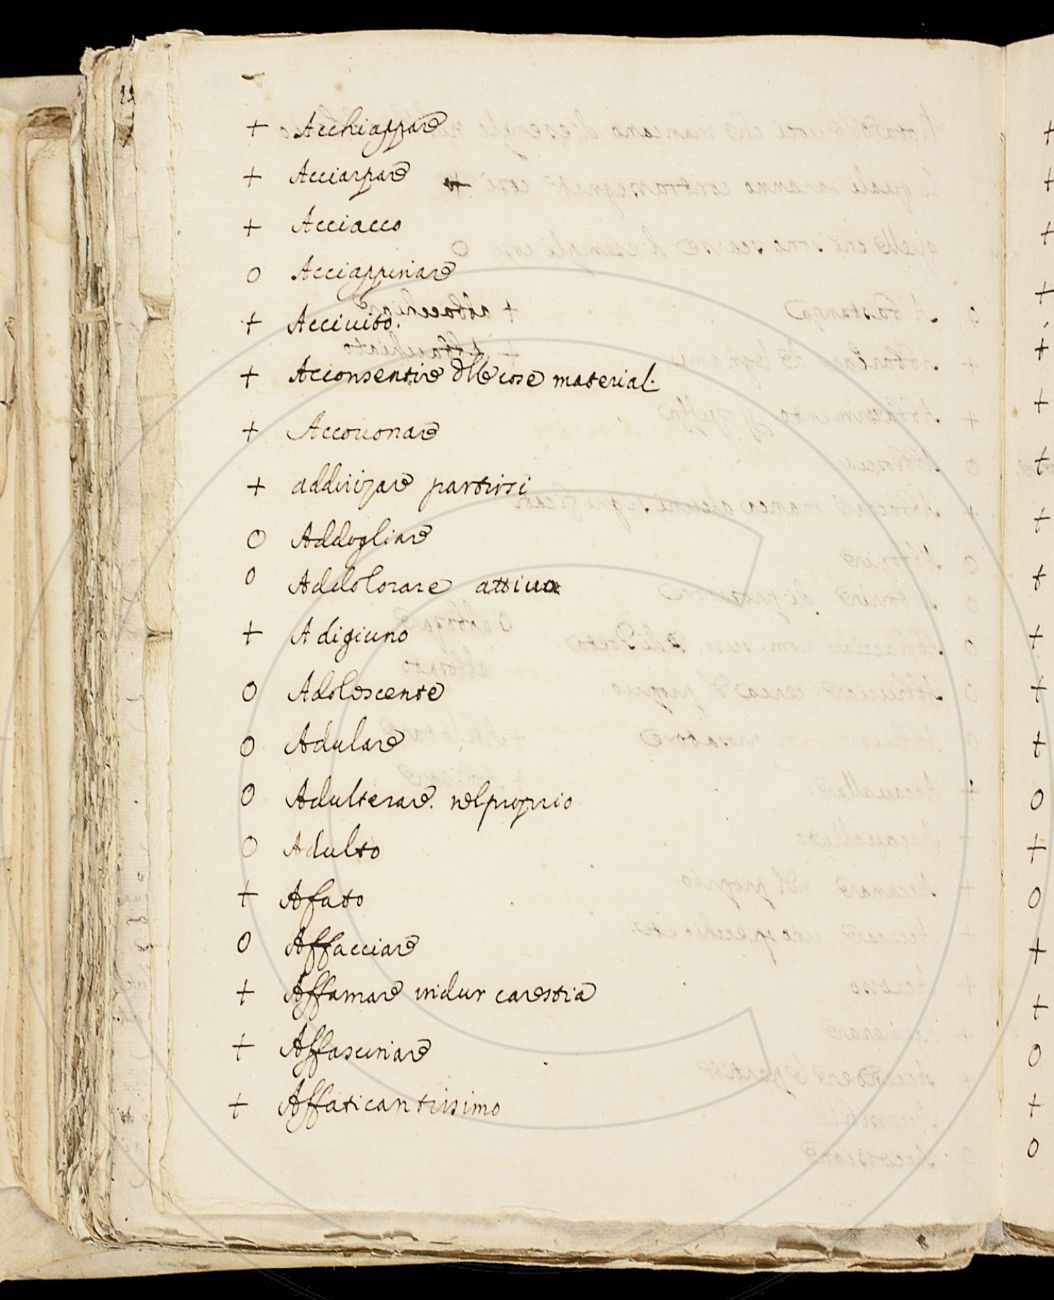 + Acchiappare
+ Acciarpare
+ Acciacco
o Acciappinare
+ Accivito.
+ Acconsentire dlle cose material.
+ Accovonare
+ addirizare partirsi
o Addogliare
o Addolorare attivo
+ A digiuno
o Adolescente
o Adulare
o Adulterare. nel proprio
o Adulto
+ Afato
o Affacciare
+ Affamare indur carestia
+ Affascinare
+ Affaticantissimo